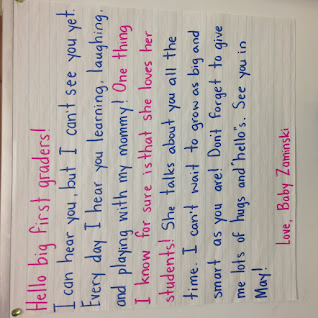 Hello big first graders!
I can hear you, but I can't see you yet.
Every day I hear you learning, laughing,
and playing with my mommy! One thing
I know for sure is that she loves her
students! She talks about you all the
time. I can't wait to grow as big and
smart as you are! Don't forget to give
me lots of hugs and "hello"s. See you in
May!
Love, Baby Zaminski